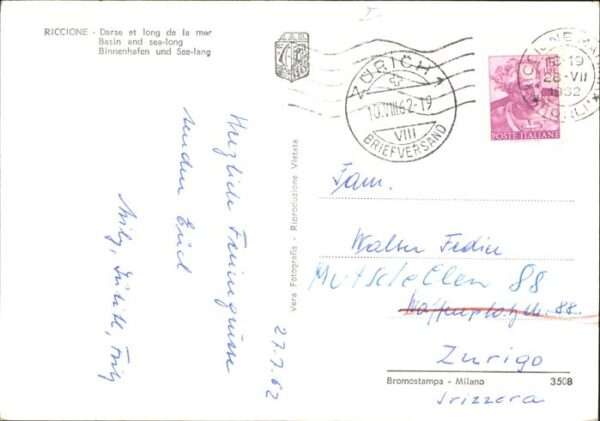 RICCIONE - Darse et long de la mer
Basin and sea-long
Binnenhafen und See-lang
Herzliche Feriengrüsse
senden Euch
27.7.62
Vera Fotografia - Riproduzione Vietata
ZÜRICH 1
10.VIII.62-19
VIII
BRIEFVERSAND
18-19
28-VII
1962
POSTE ITALIANE
Fam.
Walter
Mutschellen 88
88.
Zurigo
Svizzera
Bromostampa - Milano
3508